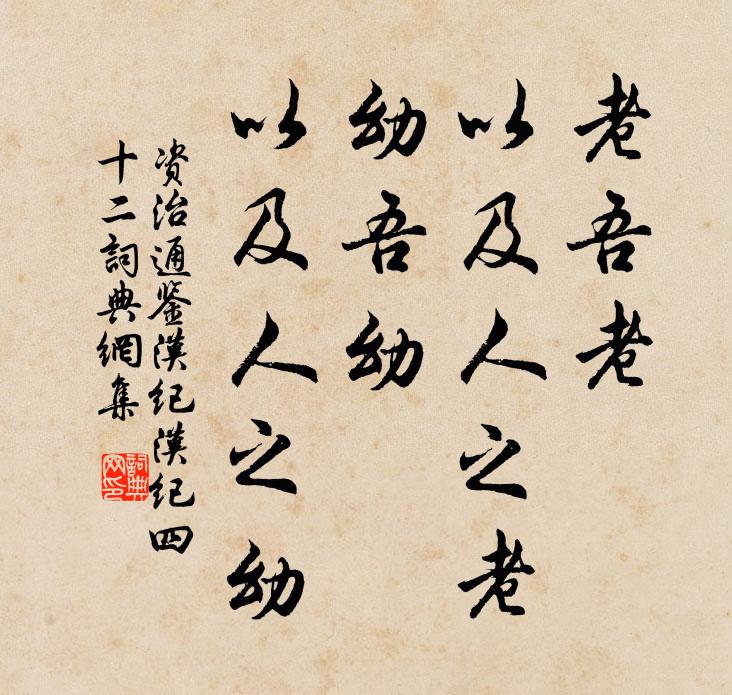 老吾老
以及人之老
幼吾幼
以及人之幼
资治通鉴漢纪漢纪四
十二詞典網集
詞典
网印